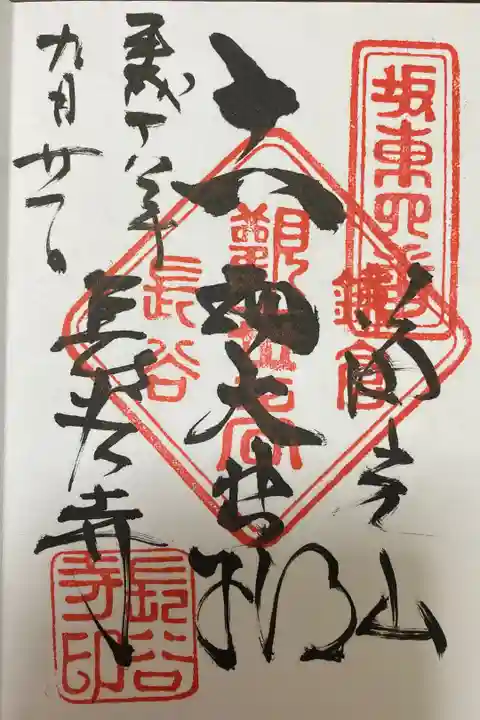 坂東四番
海光山
鎌倉
十一面大悲殿
觀世音
長谷
平成十八年
九月廿一日
長谷寺
長谷寺印